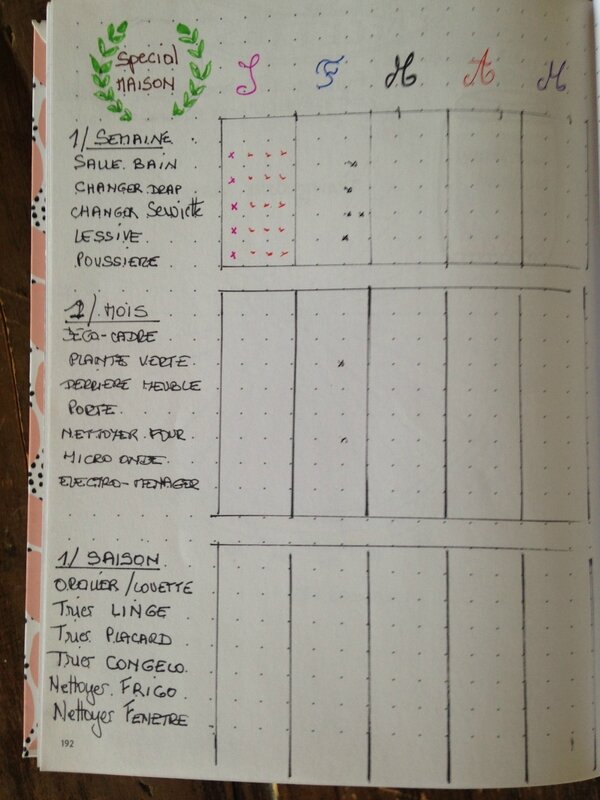 Special
MAISON
J F M A M
1/ SEMAINE
SALLE BAIN
CHANGER DRAP
CHANGER Serviette
LESSIVE
POUSSIERE
1/ MOIS
DECO-CADRE
PLANTE VERTE
DERRIERE MEUBLE
PORTE
NETTOYER FOUR
MICRO ONDE
ELECTRO-MENAGER
1/ SAISON
OREILLER / COUETTE
Trier LINGE
Trier PLACARD
Trier CONGELO
Nettoyer FRIGO
Nettoyer FENETRE
192